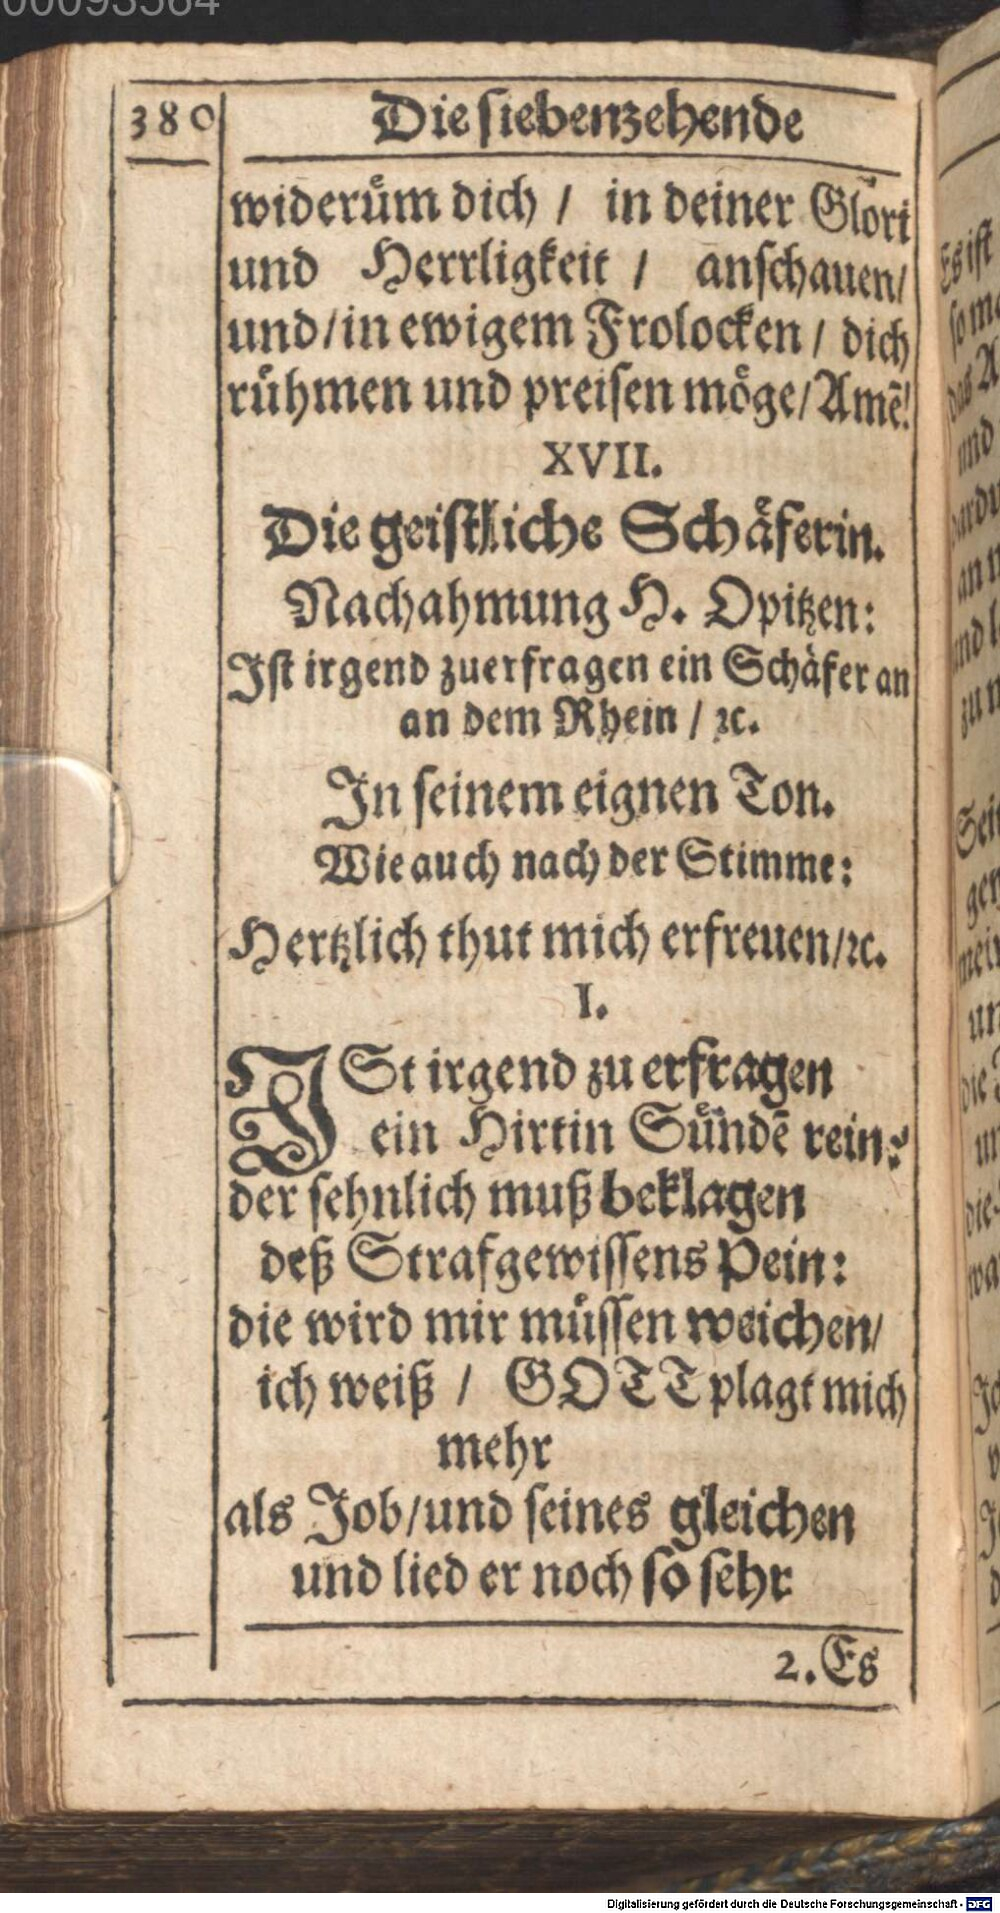 00093564
380
Die siebenzehende
widerüm dich / in deiner Glori
und Herrligkeit / anschauen/
und/in ewigem Frolocken / dich
rühmen und preisen möge/Amẽ!
XVII.
Die geistliche Schäferin.
Nachahmung H. Opitzen:
Ist irgend zuerfragen ein Schäfer an
an dem Rhein / ꝛc.
In seinem eignen Ton.
Wie auch nach der Stimme:
Hertzlich thut mich erfreuen/ꝛc.
I.
ISt irgend zu erfragen
ein Hirtin Sündẽ rein?
der sehnlich muß beklagen
deß Strafgewissens Pein:
die wird mir müssen weichen/
ich weiß / GOTT plagt mich
mehr
als Job/und seines gleichen
und lied er noch so sehr
2. Es
Es ist
und
Digitalisierung gefördert durch die Deutsche Forschungsgemeinschaft - DFG